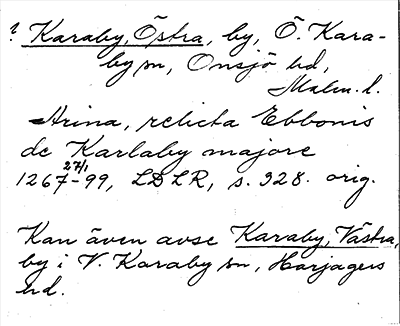 ? Karaby, Östra, by, Ö. Kara-
by sn, Onsjö hd,
Malm. l.
Arina, relicta Ebbonis
de Karlaby majore
27/1
1267-99, LDLR, s. 328. orig.
Kan även avse Karaby, Västra,
by i V. Karaby sn, Harjagers
hd.